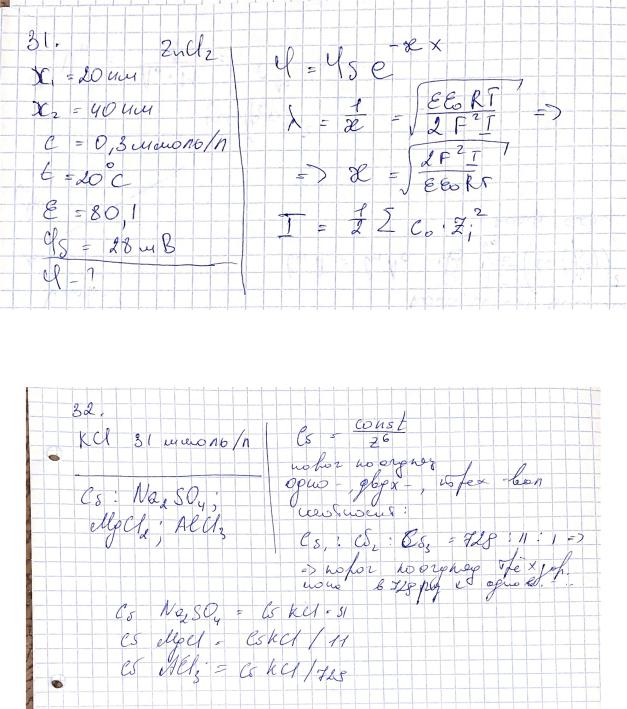 31. ZnCl₂
x₁ = 20 нм
x₂ = 40 нм
c = 0,3 ммоль/л
t = 20°C
ε = 80,1
φδ = 28 мВ
φ - ?
φ = φδ e^(-æx)
λ = 1/æ = √(εε₀RT / 2F²I) =>
=> æ = √(2F²I / εε₀RT)
I = 1/2 Σ c₀ · zᵢ²
32.
KCl 31 ммоль/л
Cб : Na₂SO₄;
MgCl₂; AlCl₃
Cб = const / z⁶
порог коагуляц
одно-, двух-, трех-вал
соотносит:
Cб₁ : Cб₂ : Cб₃ = 729 : 11 : 1 =>
=> порог коагуляц трёхзар.
иона в 729 раз <
Cб Na₂SO₄ = Cб KCl ·
Cб MgCl = Cб KCl / 11
Cб AlCl₃ = Cб KCl / 729